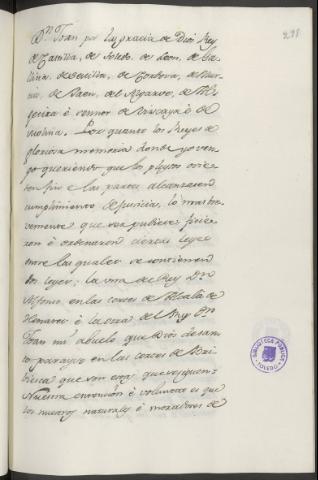 291
Dn. Joan por la gracia de Dios Rey
de Castilla, de Toledo, de Leon, de Ga-
licia, de Sevilla, de Cordova, de Mur-
cia, de Jaen, del Algarve, de Alge-
cira è sennor de Viscaya è de
Molina. Por quanto los Reyes de
gloriosa memoria donde yo ven-
go queriendo que los pleytos ovie-
sen fin è las partes alcanzasen
cumplimiento de justicia, lo mas bre-
vemente que ser pudiese ficie-
ron è ordenaron ciertas leyes
entre las quales se contienen
dos leyes; la una de Rey Dn.
Alfonso, en las cortes de Alcalà de
Henares è la otra del Rey Dn
Joan mi abuelo que Dios de san-
to parayso en las cortes de Bri-
biesca que son estas que se siguen=
Nuestra entencion è voluntat es que
los nuestros naturales è moradores de
BIBLIOTECA PUBLICA
TOLEDO